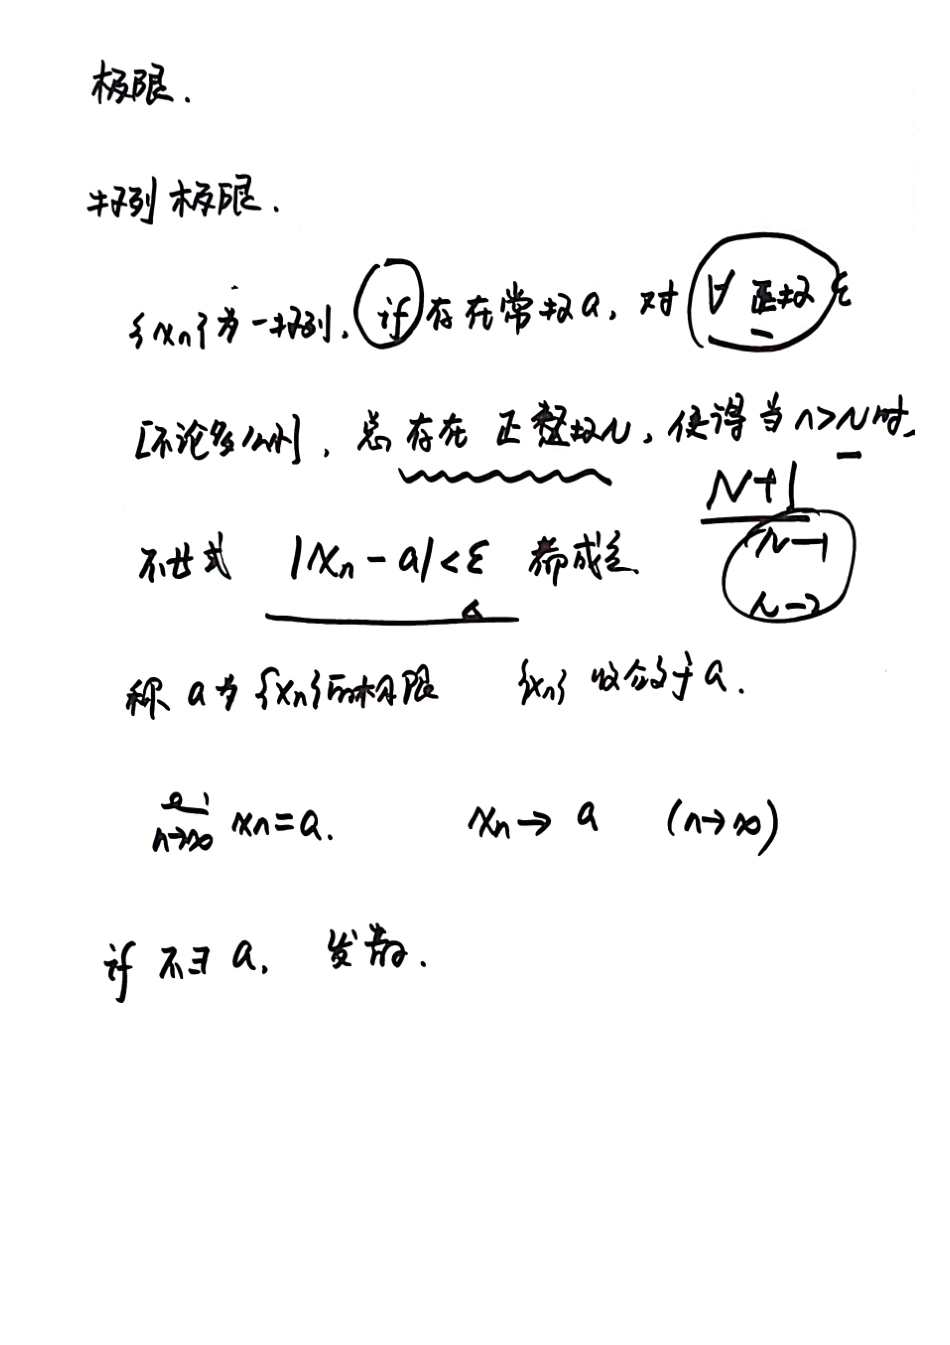 极限.
数列极限.
{xn}为一数列, if 存在常数a, 对 ∀ 正数 ε
[不论多么小], 总存在 正整数N, 使得当 n>N时,
N+1
N-1
不等式 |xn-a|<ε 都成立
N-2
称 a为{xn}的极限 {xn} 收敛于a.
n→∞ xn=a. xn→a (n→∞)
if 不∃ a, 发散.